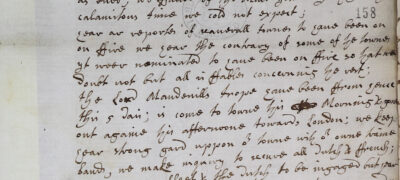 calamitous time we cold not expect;
158
year ar reportes of severall townes to haue been on
on ffire we hear the contrary of some of the townes
yt weer nominated to haue been on ffire so that we
doubt not but all is ffables concerning the rest;
the Lord Maudevills trope haue been ffrom hence
this 5 day; is come to towne this Morning & goes
out againe this afternoone towards London; we keep
hear strong gard uppon ye towne with of owne traine
band, we make inquiry to secure all Dutch & ffrench;
the Dutch to be ingaged but hear